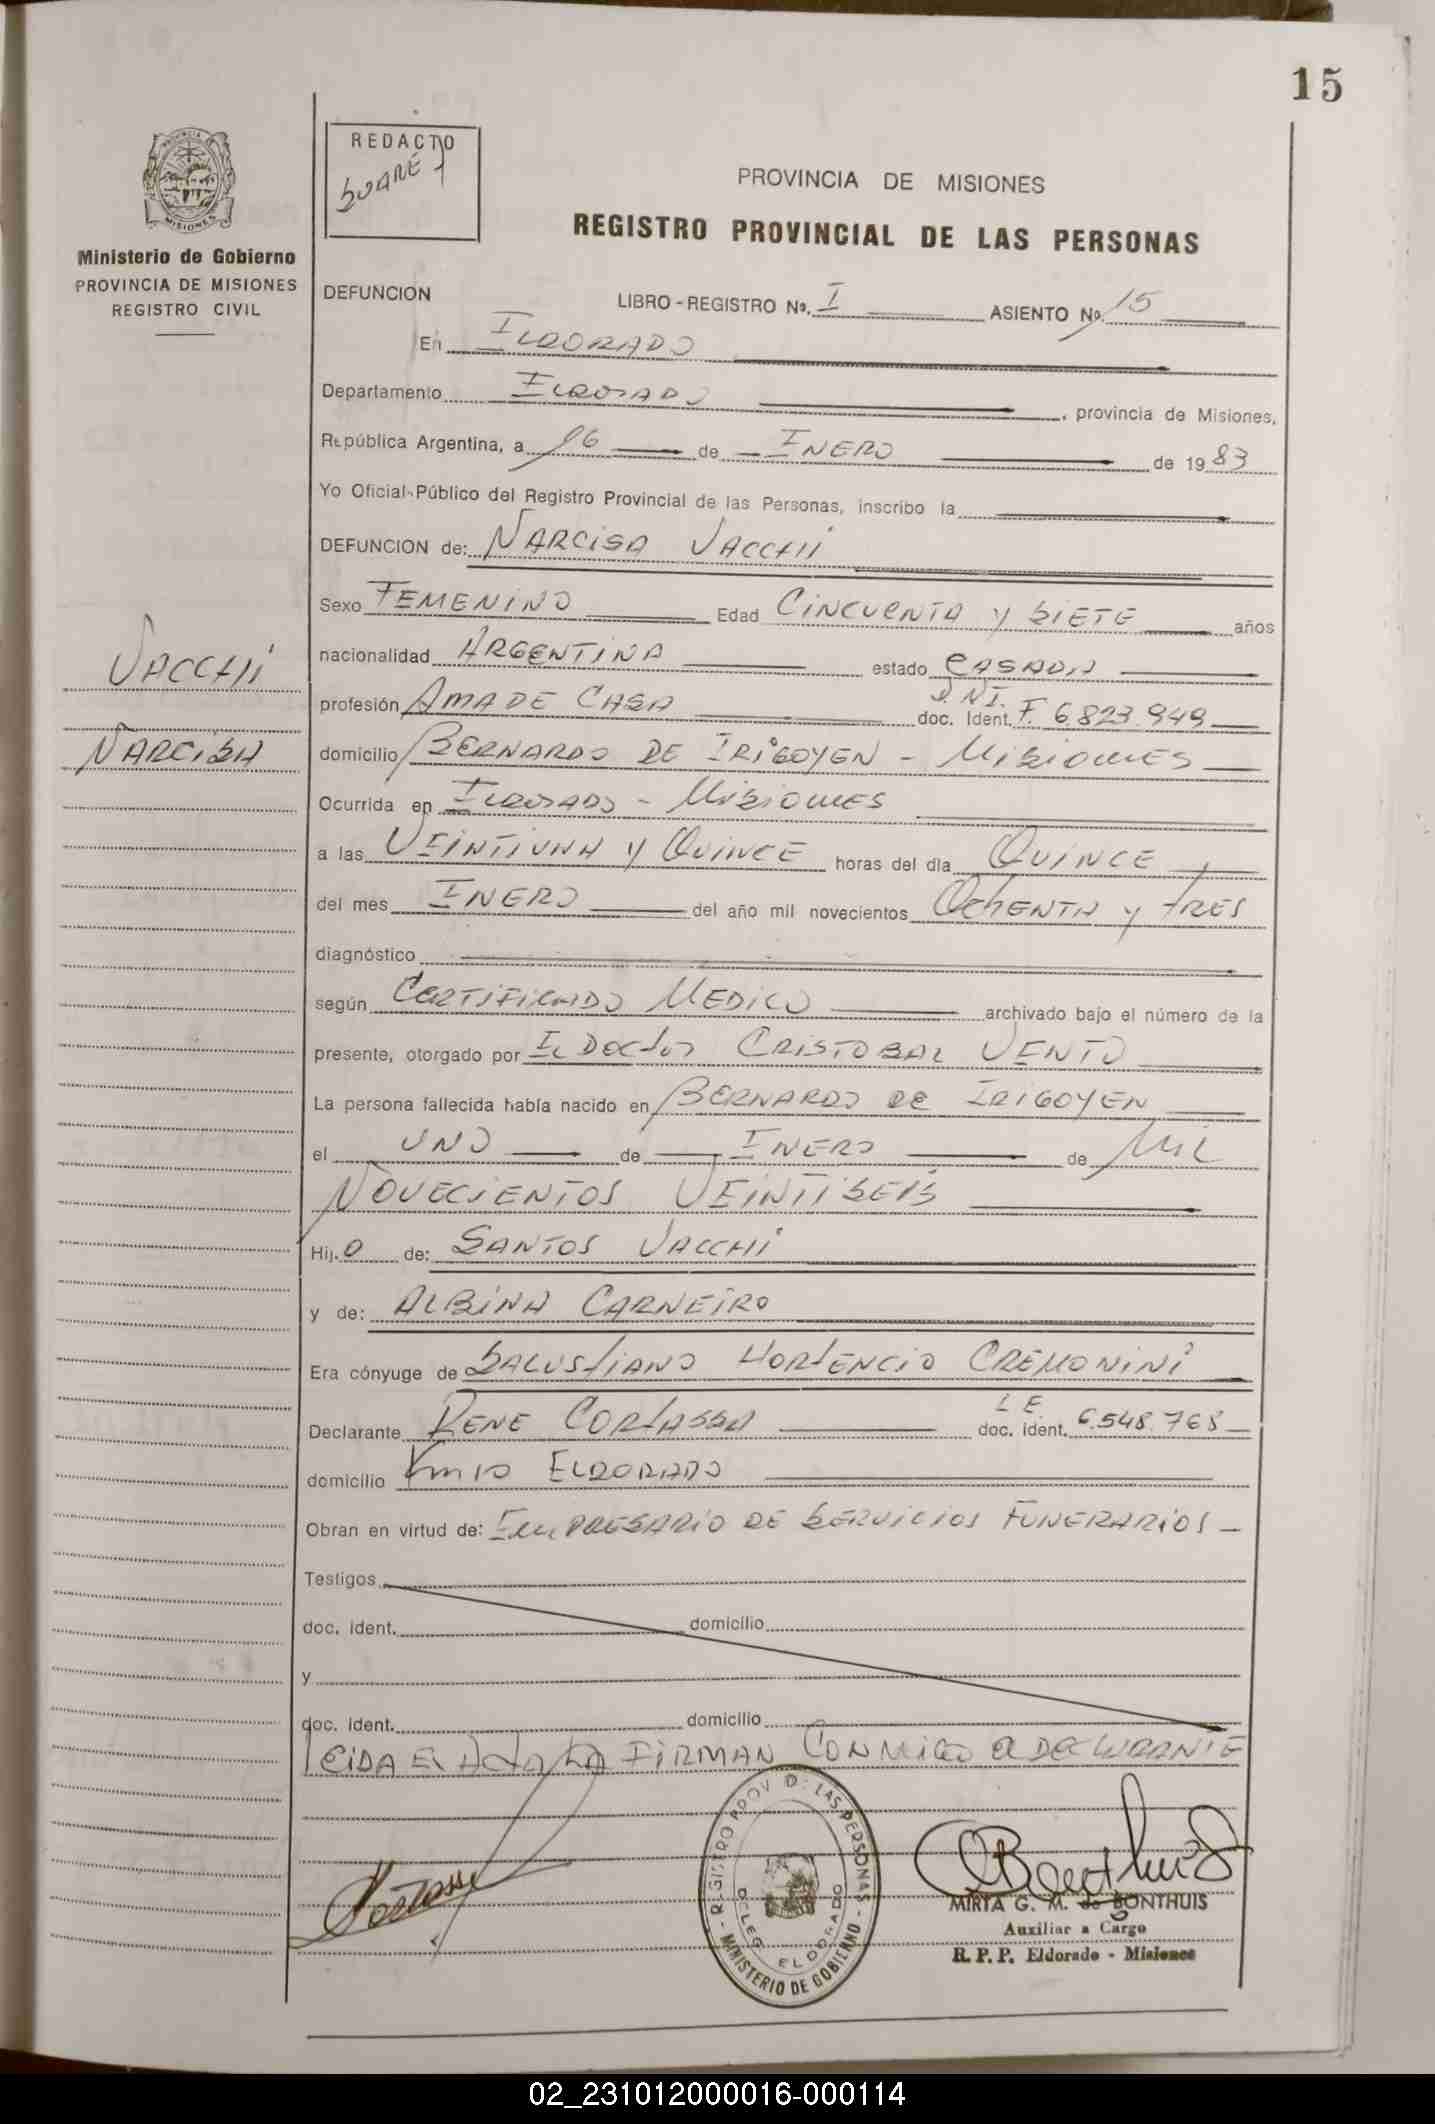 15
REDACTO
SUAREZ
PROVINCIA DE MISIONES
REGISTRO PROVINCIAL DE LAS PERSONAS
Ministerio de Gobierno
PROVINCIA DE MISIONES
REGISTRO CIVIL
DEFUNCION LIBRO-REGISTRO No. I ASIENTO No. 15
En ELDORADO
Departamento ELDORADO, provincia de Misiones,
República Argentina, a 16 de ENERO de 1983
Yo Oficial Público del Registro Provincial de las Personas, inscribo la
DEFUNCION de: NARCISA VACCHI
Sexo FEMENINO Edad CINCUENTA Y SIETE años
nacionalidad ARGENTINA estado CASADA
profesión AMA DE CASA doc. Ident. D.N.I. F. 6.823.949
domicilio BERNARDO DE IRIGOYEN - MISIONES
Ocurrida en ELDORADO - MISIONES
a las VEINTIUNA Y QUINCE horas del día QUINCE
del mes ENERO del año mil novecientos OCHENTA Y TRES
diagnóstico
según CERTIFICADO MEDICO archivado bajo el número de la
presente, otorgado por EL DOCTOR CRISTOBAL VENTO
La persona fallecida había nacido en BERNARDO DE IRIGOYEN
el UNO de ENERO de MIL
NOVECIENTOS VEINTISEIS
Hij.O de: SANTOS VACCHI
y de: ALBINA CARNEIRO
Era cónyuge de SALUSTIANO HORTENCIO CREMONINI
Declarante RENE CORTASSA doc. ident. L E 6.548.768
domicilio Km 10 ELDORADO
Obran en virtud de: EMPRESARIO DE SERVICIOS FUNERARIOS -
Testigos
doc. ident. domicilio
y
doc. ident. domicilio
LEIDA EL ACTA LA FIRMAN CONMIGO EL DECLARANTE
VACCHI
NARCISA
Cortassa
REGISTRO PROV. D. LAS PERSONAS
DELEG. ELDORADO
MINISTERIO DE GOBIERNO
MIRTA G. M. de BONTHUIS
Auxiliar a Cargo
R. P. P. Eldorado - Misiones
02_231012000016-000114